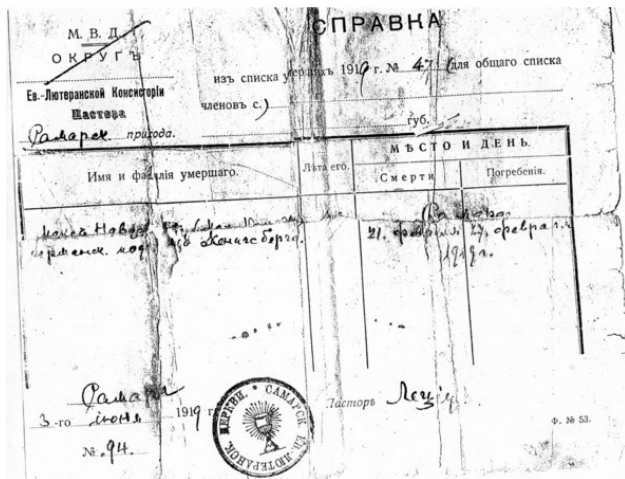 М. В. Д.
ОКРУГЪ
Ев.-Лютеранской Консисторіи
Пастора
Самарск прихода.
СПРАВКА
изъ списка умершихъ 1919 г. № 47 (для общаго списка
членовъ с.)
губ.
Имя и фамилія умершаго.
Лѣта его.
МѢСТО И ДЕНЬ.
Смерти
Погребенія.
Самара
германск. изъ Кенигсберга.
21. февраля 27. февраля
1919 г.
Самара
3-го іюня 1919 г.
№. 94.
Пасторъ
САМАРСК. ЕВ.-ЛЮТЕРАНСК. ЦЕРКВИ.
Ф. № 53.